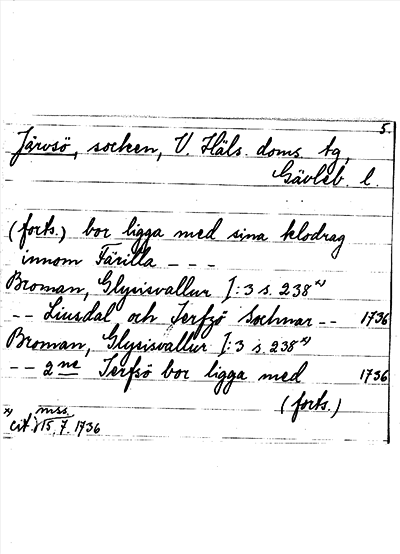 5.
Järvsö, socken, V. Häls. doms. tg,
Gävleb. l.
(forts.) bor ligga med sina klodrag
innom Färilla - - -
Broman, Glysisvallur I:3 s. 238 x)
-- Liusdal och Jerfzö Sochnar -- 1736
Broman, Glysisvallur I:3 s. 238 x)
-- 2ne Jerfsö bor ligga med 1736
(forts.)
x) cit. i mss. 15.7.1736